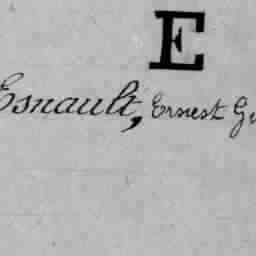 E
Esnault, Ernest